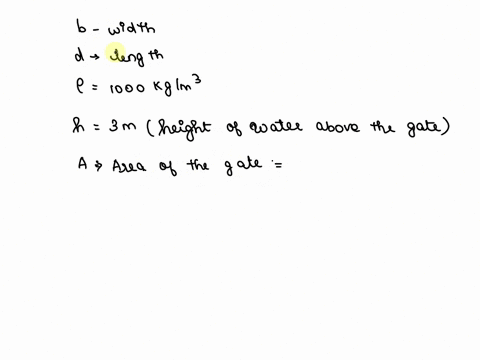 b - width
d → length
ρ = 1000 kg/m³
h = 3m (height of water above the gate)
A → Area of the gate :=